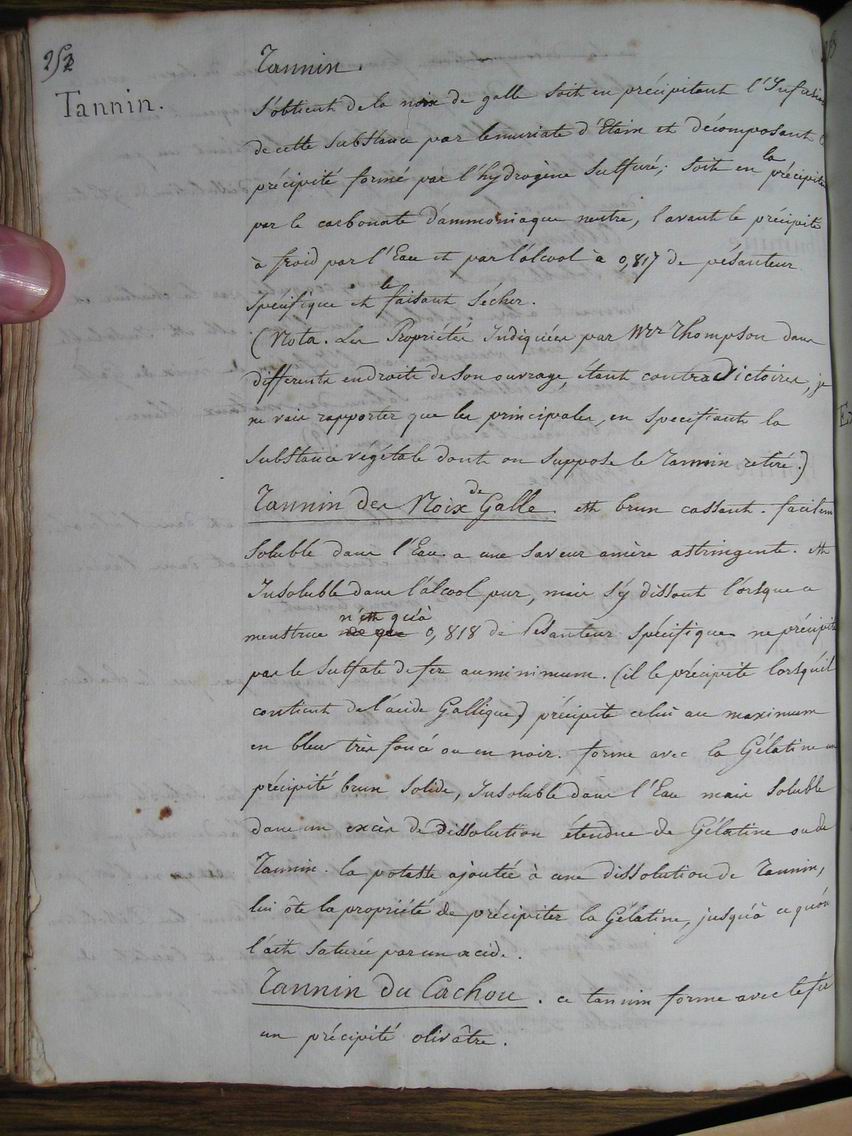 252
Tannin.
Tannin.
S'obtient de la noix de galle soit en précipitant l'Infusion
de cette substance par le muriate d'Etain et décomposant
précipité formé par l'hydrogène sulfuré; soit en la précipite
par le carbonate d'ammoniaque neutre, lavant le précipité
à froid par l'Eau et par l'alcool à 0,817 de pesanteur
spécifique et le faisant sécher.
(Nota. Les Propriétés Indiquées par Mr Thompson dans
differents endroits de son ouvrage, étant contradictoires, je
ne vais rapporter que les principales, en specifiants la
substance végétale dont on suppose le Tannin retiré.)
Tannin des Noix de Galle. est brun cassant. facilem
soluble dans l'Eau. a une saveur amère astringente. est
Insoluble dans l'alcool pur, mais s'y dissout lorsque ce
menstrue n'est qu'à 0,818 de Pesanteur Spécifique ne précipite
pas le sulfate de fer au minimum. (il le précipite lorsqu'il
contient de l'acide Gallique) précipite celui au maximum
en bleu très foncé ou en noir. forme avec la Gélatine un
précipité brun solide, Insoluble dans l'Eau mais soluble
dans un excès de dissolution étendue de Gélatine ou de
Tannin. la potasse ajoutée à une dissolution de Tannin,
lui ôte la propriété de précipiter la Gélatine, jusqu'à ce qu'on
l'ait saturée par un acide.
Tannin du Cachou. ce tannin forme avec le fer
un précipité olivâtre.